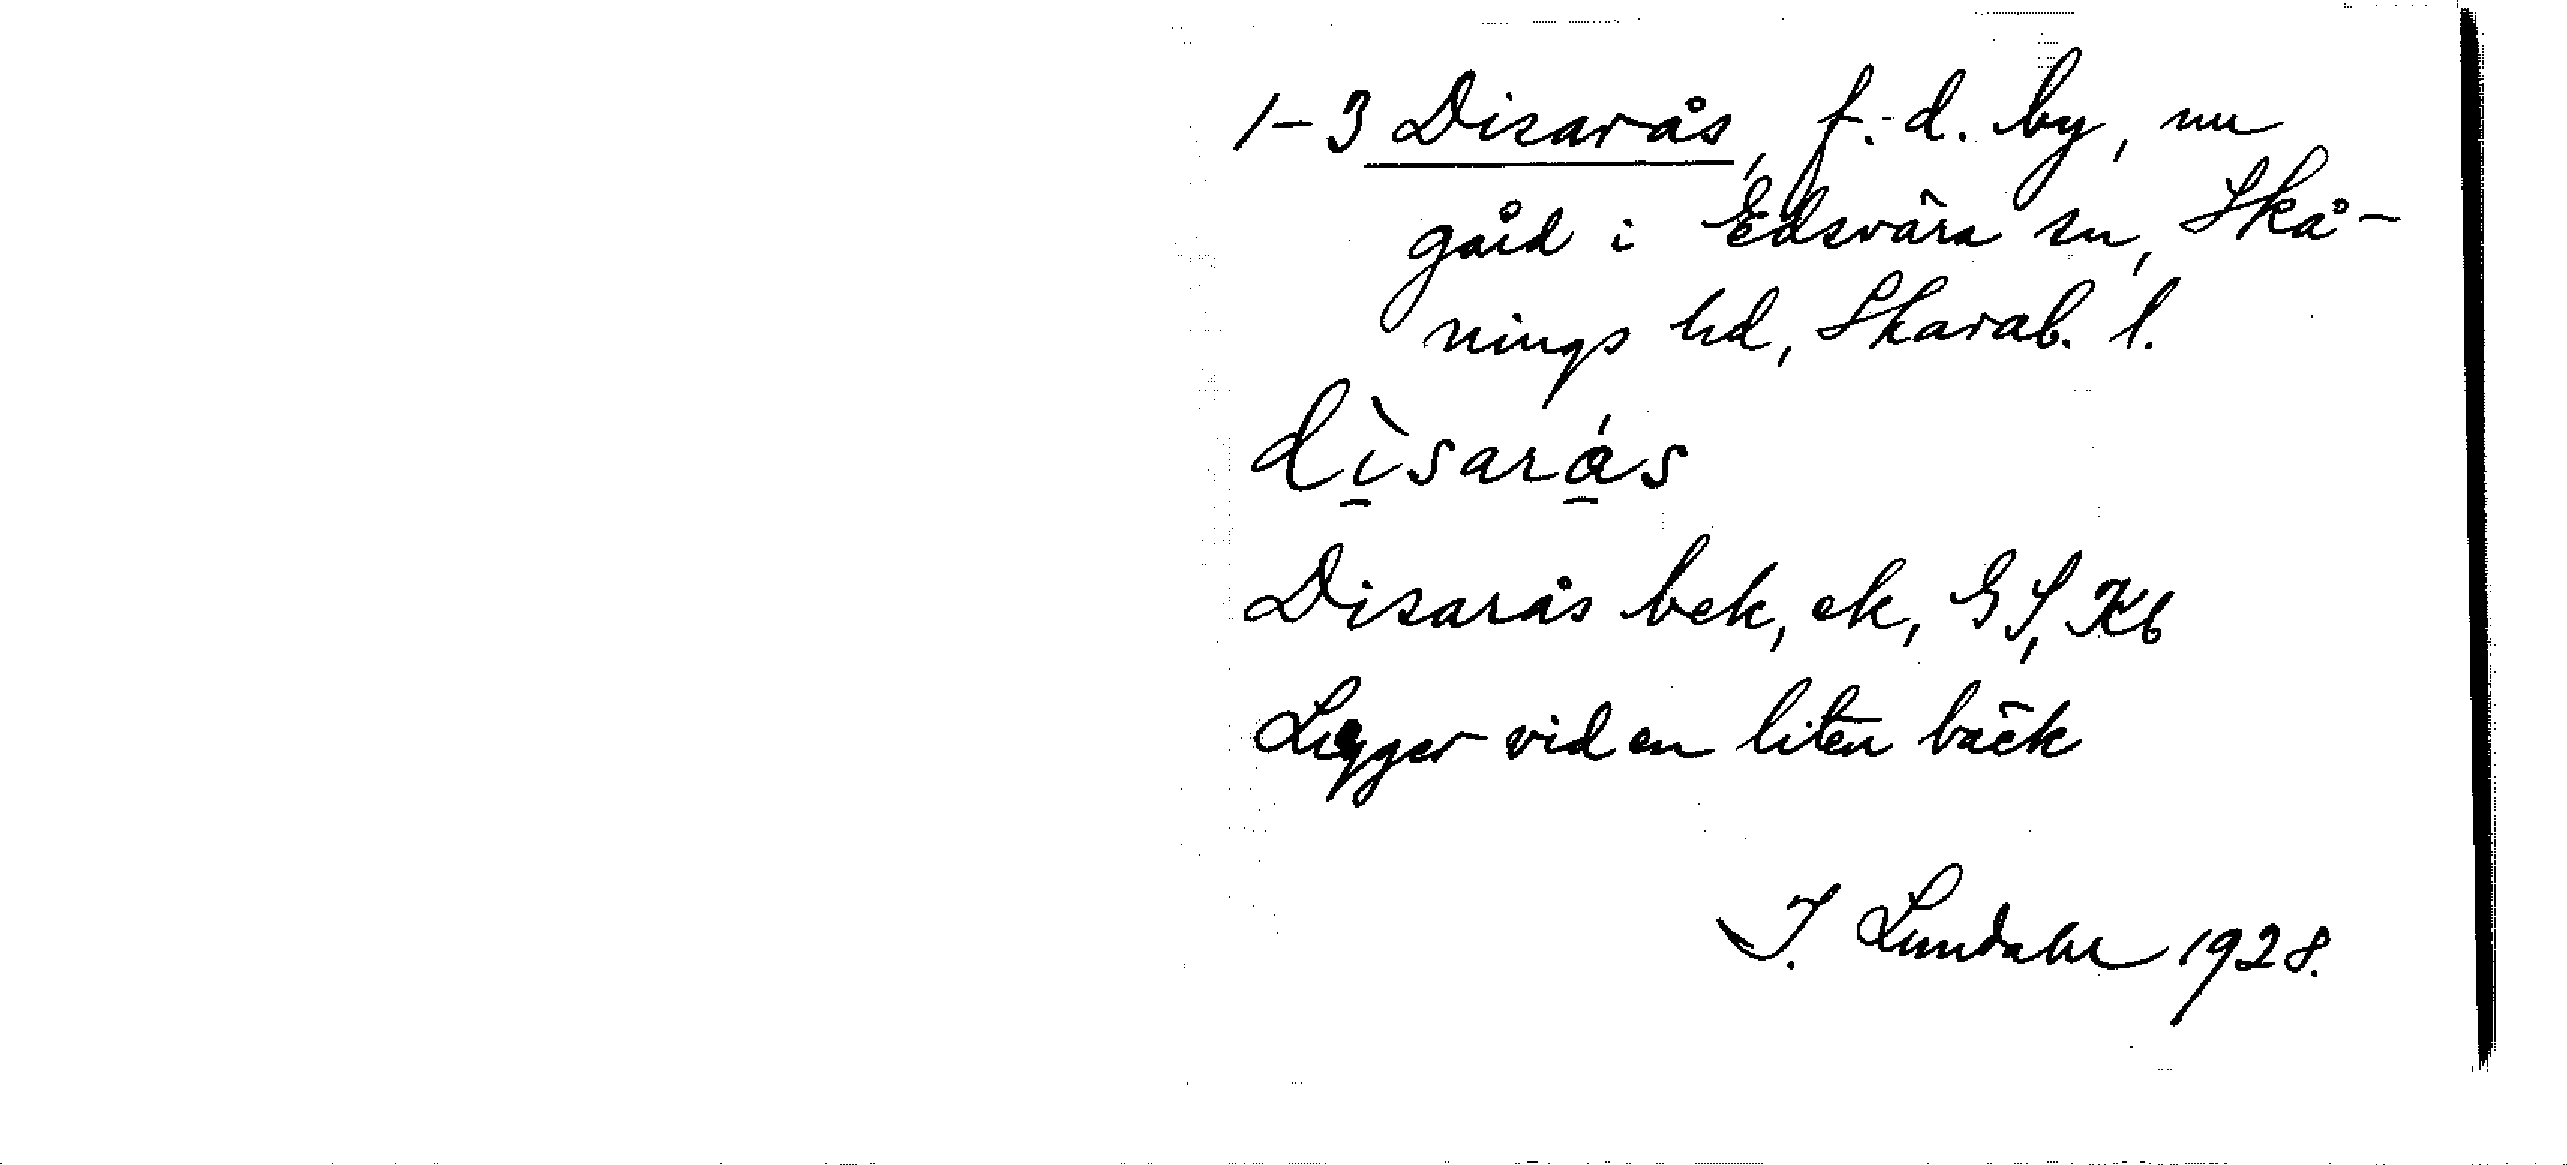 1-3 Disarås, f.d. by, nu
gård i Edsvära sn, Skå-
nings hd, Skarab. l.
dìsarás
Disarås bek, ek, GS, Kb
Ligger vid en liten bäck
I. Lundahl 1928.